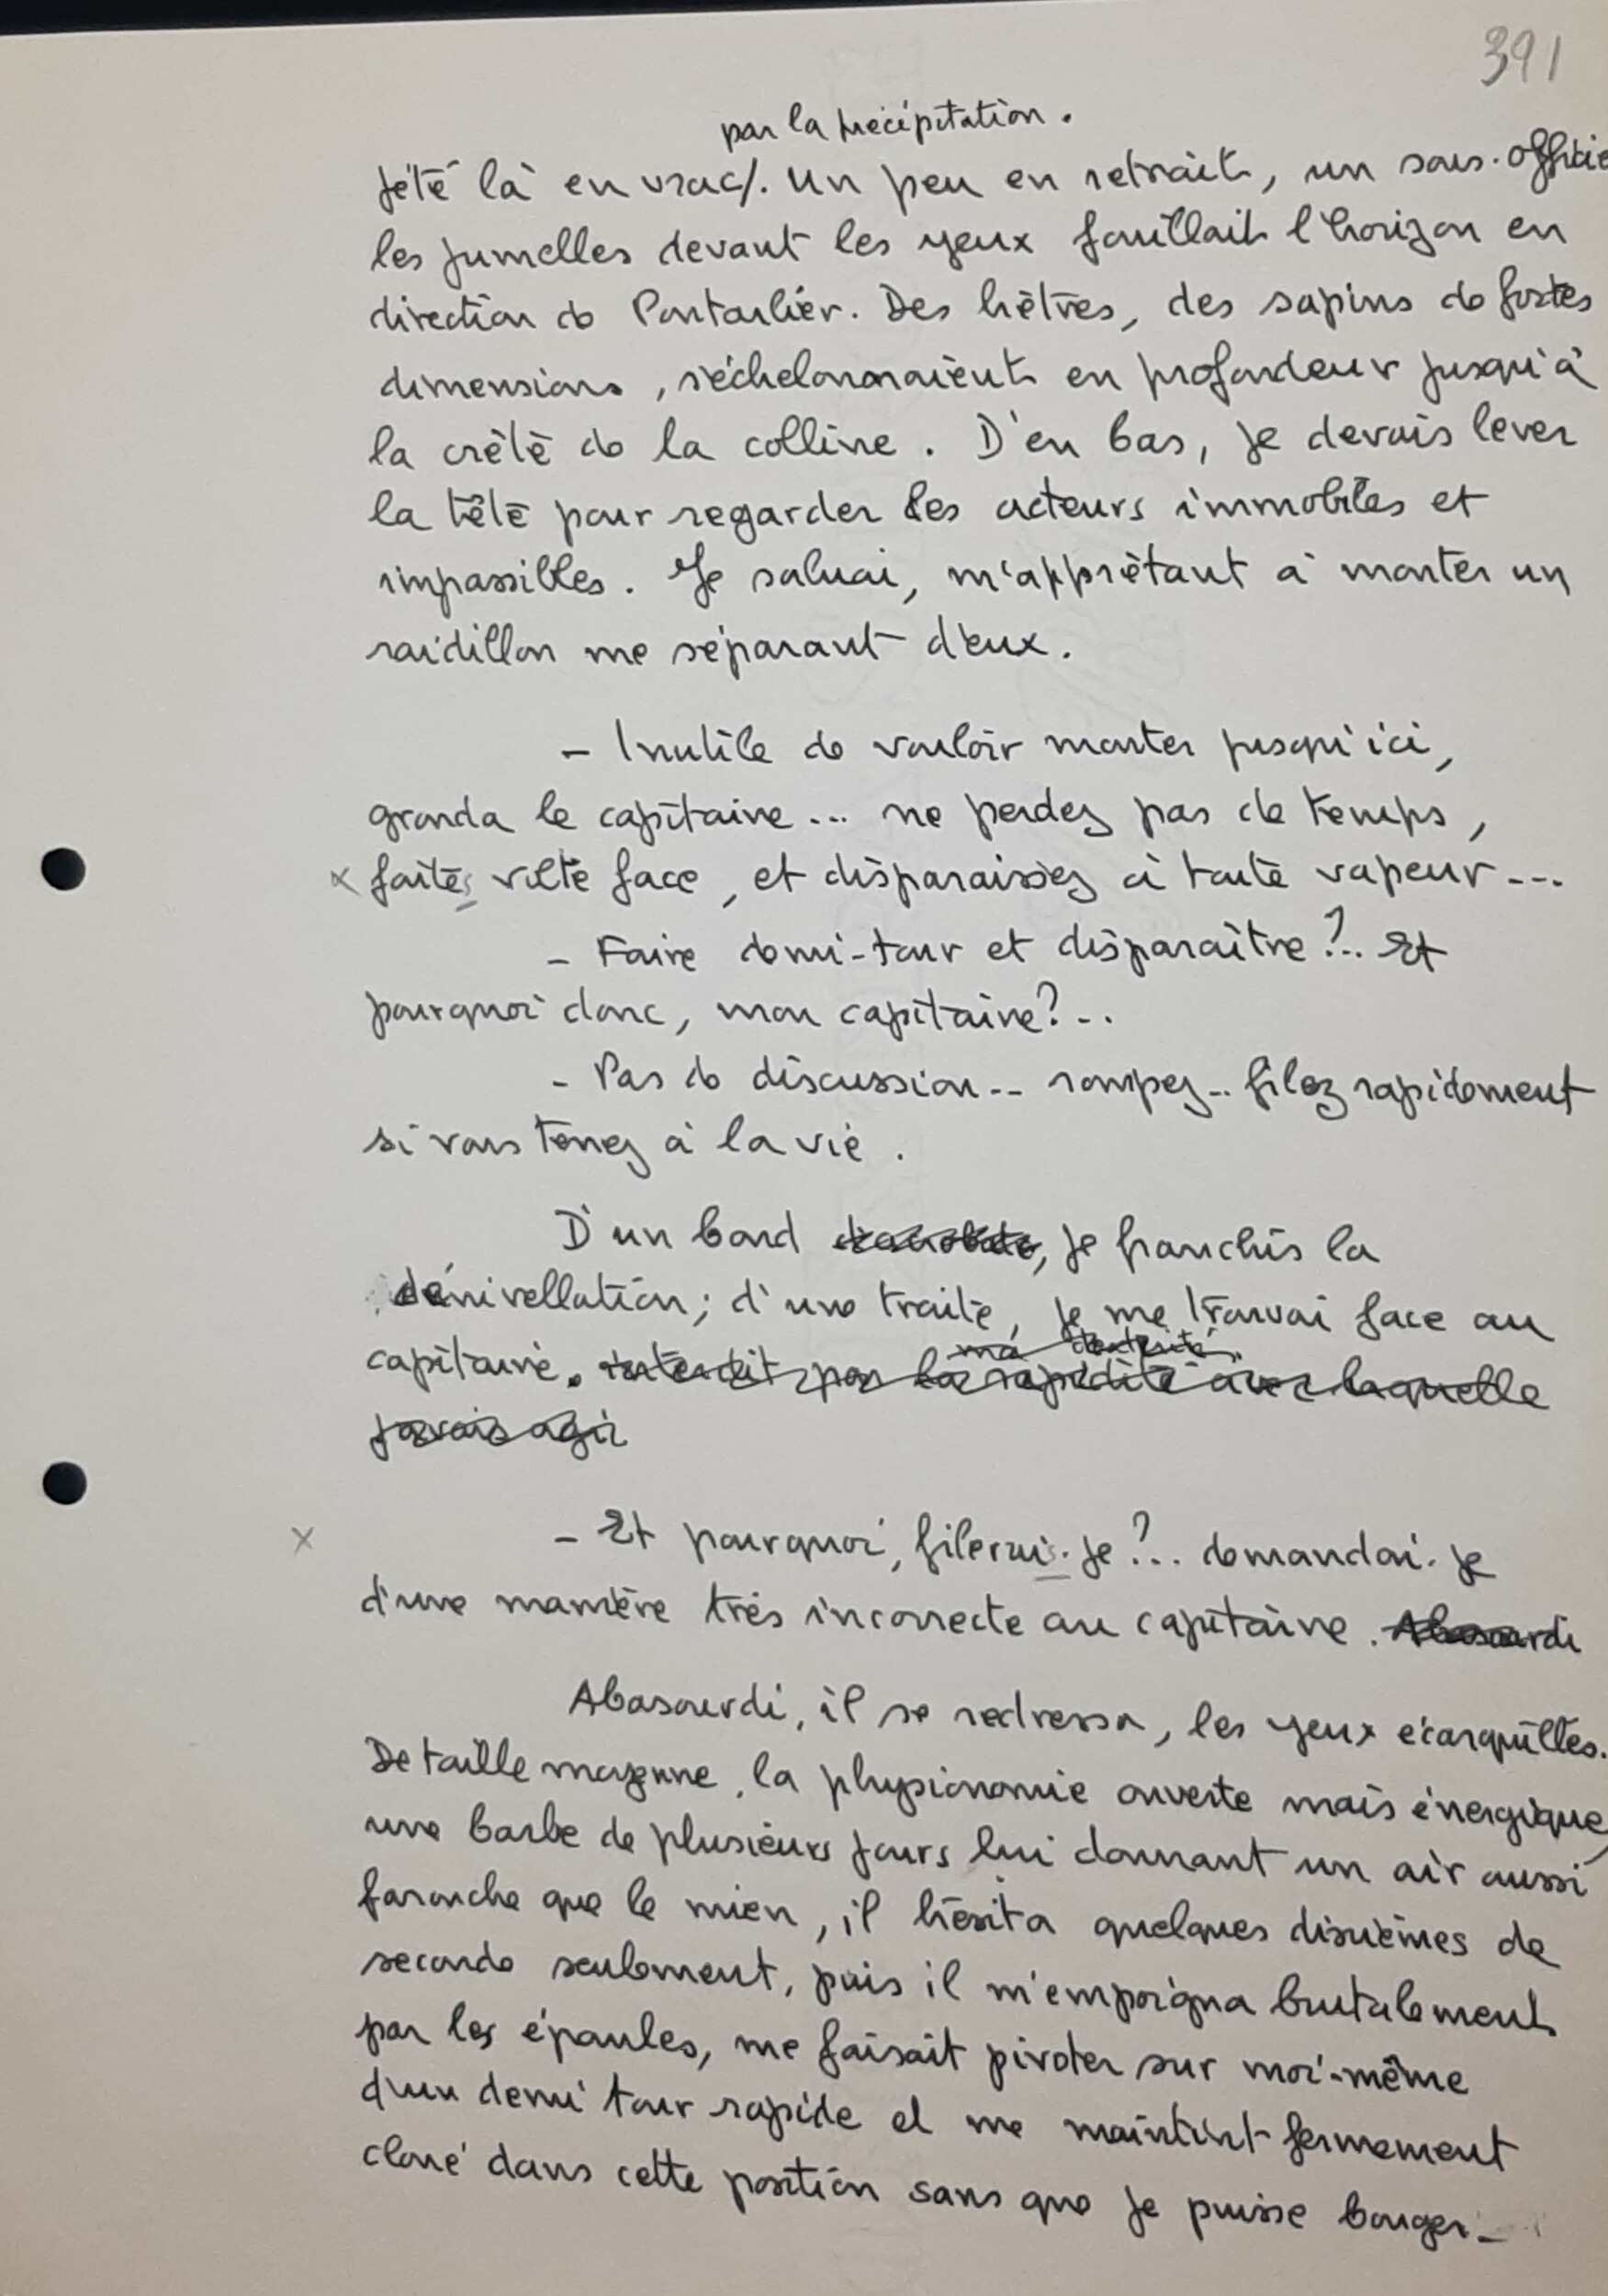 391
par la précipitation.
jeté là en vrac/. Un peu en retrait, un sous-officie
les jumelles devant les yeux fouillait l'horizon en
direction de Pontarlier. Des hêtres, des sapins de fortes
dimensions, s'échelonnaient en profondeur jusqu'à
la crête de la colline. D'en bas, je devais lever
la tête pour regarder les acteurs immobiles et
impassibles. Je saluai, m'apprêtant à monter un
raidillon me séparant d'eux.
- Inutile de vouloir monter jusqu'ici,
gronda le capitaine... ne perdez pas de temps,
x faites volte face, et disparaissez à toute vapeur...
- Faire demi-tour et disparaître?.. Et
pourquoi donc, mon capitaine?..
- Pas de discussion.. rompez.. filez rapidement
si vous tenez à la vie.
D'un bond, je franchis la
dénivellation; d'une traite, je me trouvai face au
ma dextérité.
capitaine. interdit par la rapidité avec laquelle
j'avais agi
x - Et pourquoi, filerai-je?.. demandai-je
d'une manière très incorrecte au capitaine. Abasourdi
Abasourdi, il se redressa, les yeux écarquillés.
De taille moyenne, la physionomie ouverte mais énergique,
une barbe de plusieurs jours lui donnant un air aussi
farouche que le mien, il hésita quelques dixièmes de
seconde seulement, puis il m'empoigna brutalement
par les épaules, me faisait pivoter sur moi-même
d'un demi tour rapide et me maintint fermement
cloué dans cette position sans que je puisse bouger_